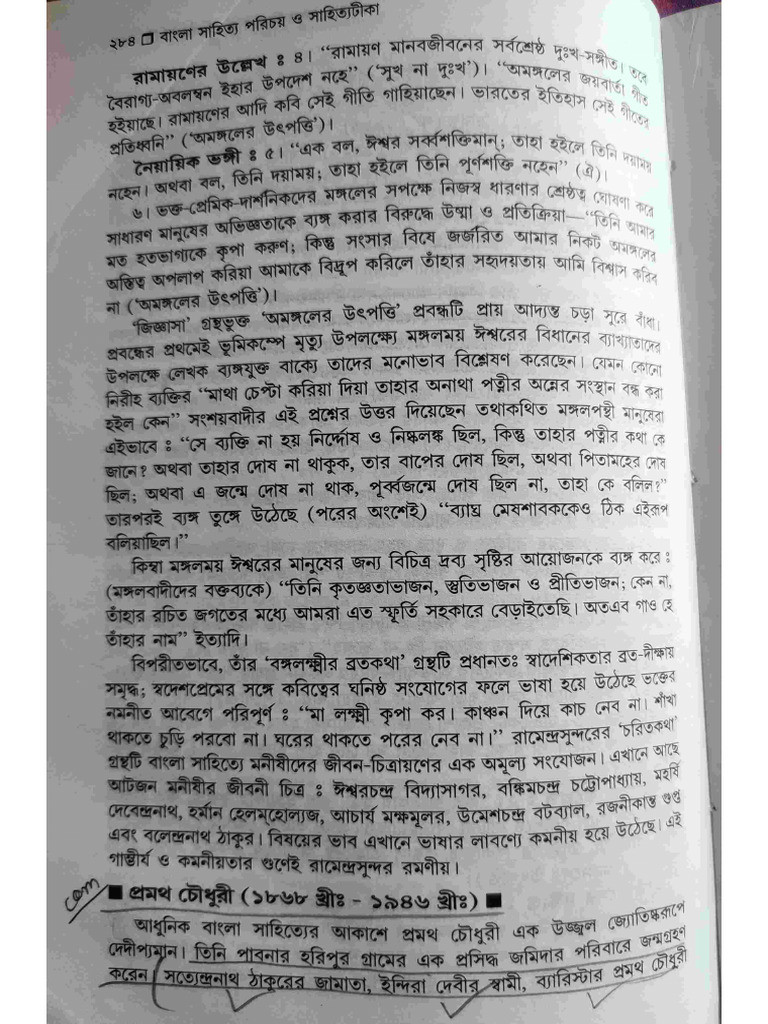 ২৮৪ ❒ বাংলা সাহিত্য পরিচয় ও সাহিত্যটীকা
রামায়ণের উল্লেখ : ৪। “রামায়ণ মানবজীবনের সর্বশ্রেষ্ঠ দুঃখ-সঙ্গীত। তবে
বৈরাগ্য-অবলম্বন ইহার উপদেশ নহে” (‘সুখ না দুঃখ’)। “অমঙ্গলের জয়বার্তা গীত
হইয়াছে। রামায়ণের আদি কবি সেই গীতি গাহিয়াছেন। ভারতের ইতিহাস সেই গীতের
প্রতিধ্বনি” (‘অমঙ্গলের উৎপত্তি’)।
নৈয়ায়িক ভঙ্গী : ৫। “এক বল, ঈশ্বর সর্ব্বশক্তিমান্; তাহা হইলে তিনি দয়াময়
নহেন। অথবা বল, তিনি দয়াময়; তাহা হইলে তিনি পূর্ণশক্তি নহেন” (ঐ)।
৬। ভক্ত-প্রেমিক-দার্শনিকদের মঙ্গলের সপক্ষে নিজস্ব ধারণার শ্রেষ্ঠত্ব ঘোষণা করে
সাধারণ মানুষের অভিজ্ঞতাকে ব্যঙ্গ করার বিরুদ্ধে উষ্মা ও প্রতিক্রিয়া—“তিনি আমার
মত হতভাগ্যকে কৃপা করুণ; কিন্তু সংসার বিষে জর্জরিত আমার নিকট অমঙ্গলের
অস্তিত্ব অপলাপ করিয়া আমাকে বিদ্রূপ করিলে তাঁহার সহৃদয়তায় আমি বিশ্বাস করিব
না (‘অমঙ্গলের উৎপত্তি’)।
‘জিজ্ঞাসা’ গ্রন্থভুক্ত ‘অমঙ্গলের উৎপত্তি’ প্রবন্ধটি প্রায় আদ্যন্ত চড়া সুরে বাঁধা।
প্রবন্ধের প্রথমেই ভূমিকম্পে মৃত্যু উপলক্ষ্যে মঙ্গলময় ঈশ্বরের বিধানের ব্যাখ্যাতাদের
উপলক্ষে লেখক ব্যঙ্গযুক্ত বাক্যে তাদের মনোভাব বিশ্লেষণ করেছেন। যেমন কোনো
নিরীহ ব্যক্তির “মাথা চেপ্টা করিয়া দিয়া তাহার অনাথা পত্নীর অন্নের সংস্থান বন্ধ করা
হইল কেন” সংশয়বাদীর এই প্রশ্নের উত্তর দিয়েছেন তথাকথিত মঙ্গলপন্থী মানুষেরা
এইভাবে : “সে ব্যক্তি না হয় নির্দ্দোষ ও নিষ্কলঙ্ক ছিল, কিন্তু তাহার পত্নীর কথা কে
জানে? অথবা তাহার দোষ না থাকুক, তার বাপের দোষ ছিল, অথবা পিতামহের দোষ
ছিল; অথবা এ জন্মে দোষ না থাক, পূর্ব্বজন্মে দোষ ছিল না, তাহা কে বলিল?”
তারপরই ব্যঙ্গ তুঙ্গে উঠেছে (পরের অংশেই) “ব্যাঘ্র মেষশাবককেও ঠিক এইরূপ
বলিয়াছিল।”
কিম্বা মঙ্গলময় ঈশ্বরের মানুষের জন্য বিচিত্র দ্রব্য সৃষ্টির আয়োজনকে ব্যঙ্গ করে :
(মঙ্গলবাদীদের বক্তব্যকে) “তিনি কৃতজ্ঞতাভাজন, স্তুতিভাজন ও প্রীতিভাজন; কেন না,
তাঁহার রচিত জগতের মধ্যে আমরা এত স্ফূর্তি সহকারে বেড়াইতেছি। অতএব গাও হে
তাঁহার নাম” ইত্যাদি।
বিপরীতভাবে, তাঁর ‘বঙ্গলক্ষ্মীর ব্রতকথা’ গ্রন্থটি প্রধানতঃ স্বাদেশিকতার ব্রত-দীক্ষায়
সমৃদ্ধ; স্বদেশপ্রেমের সঙ্গে কবিত্বের ঘনিষ্ঠ সংযোগের ফলে ভাষা হয়ে উঠেছে ভক্তের
নমনীত আবেগে পরিপূর্ণ : “মা লক্ষ্মী কৃপা কর। কাঞ্চন দিয়ে কাচ নেব না। শাঁখা
থাকতে চুড়ি পরবো না। ঘরের থাকতে পরের নেব না।” রামেন্দ্রসুন্দরের ‘চরিতকথা’
গ্রন্থটি বাংলা সাহিত্যে মনীষীদের জীবন-চিত্রায়ণের এক অমূল্য সংযোজন। এখানে আছে
আটজন মনীষীর জীবনী চিত্র : ঈশ্বরচন্দ্র বিদ্যাসাগর, বঙ্কিমচন্দ্র চট্টোপাধ্যায়, মহর্ষি
দেবেন্দ্রনাথ, হর্মান হেলম্‌হোলৎজ, আচার্য মক্ষমূলর, উমেশচন্দ্র বটব্যাল, রজনীকান্ত গুপ্ত
এবং বলেন্দ্রনাথ ঠাকুর। বিষয়ের ভাব এখানে ভাষার লাবণ্যে কমনীয় হয়ে উঠেছে। এই
গাম্ভীর্য ও কমনীয়তার গুণেই রামেন্দ্রসুন্দর রমণীয়।
com ■ প্রমথ চৌধুরী (১৮৬৮ খ্রীঃ - ১৯৪৬ খ্রীঃ) ■
আধুনিক বাংলা সাহিত্যের আকাশে প্রমথ চৌধুরী এক উজ্জ্বল জ্যোতিষ্করূপে
দেদীপ্যমান। তিনি পাবনার হরিপুর গ্রামের এক প্রসিদ্ধ জমিদার পরিবারে জন্মগ্রহণ
করেন। সত্যেন্দ্রনাথ ঠাকুরের জামাতা, ইন্দিরা দেবীর স্বামী, ব্যারিস্টার প্রমথ চৌধুরী